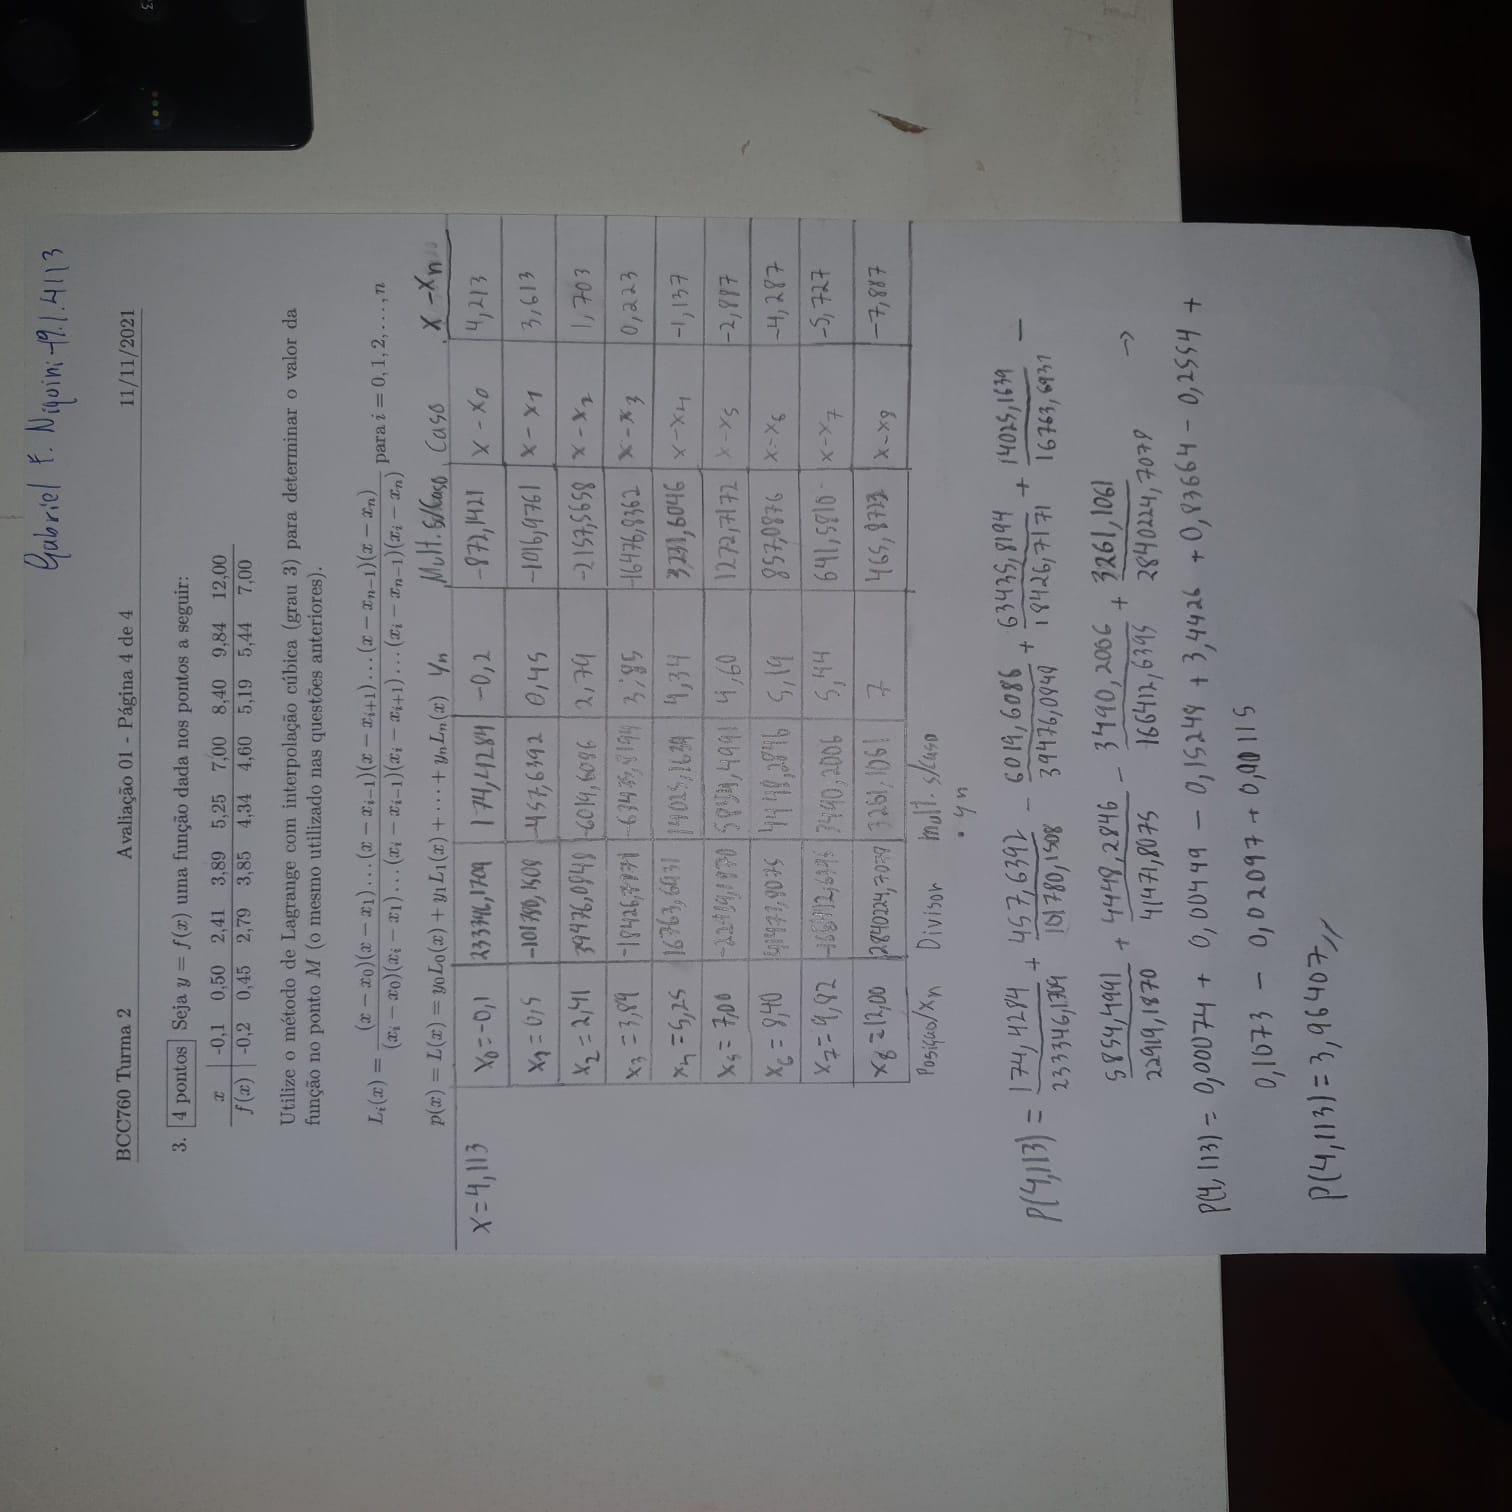 Gabriel F. Niquini - 19.1.4113
BCC760 Turma 2 Avaliação 01 - Página 4 de 4 11/11/2021
3. 4 pontos Seja y = f(x) uma função dada nos pontos a seguir:
x -0,1 0,50 2,41 3,89 5,25 7,00 8,40 9,84 12,00
f(x) -0,2 0,45 2,79 3,85 4,34 4,60 5,19 5,44 7,00
Utilize o método de Lagrange com interpolação cúbica (grau 3) para determinar o valor da
função no ponto M (o mesmo utilizado nas questões anteriores).
Li(x) = (x − x0)(x − x1)...(x − xi−1)(x − xi+1)...(x − xn−1)(x − xn) / (xi − x0)(xi − x1)...(xi − xi−1)(xi − xi+1)...(xi − xn−1)(xi − xn) para i = 0, 1, 2, ..., n
p(x) = L(x) = y0L0(x) + y1L1(x) + ··· + ynLn(x) Yn Mult. s/Caso Caso x - xn
x = 4,113 x0 = -0,1 233346,1709 174,4284 -0,2 -872,1421 x - x0 4,213
x1 = 0,5 -101780,1508 -457,6392 0,45 -1016,9761 x - x1 3,613
x2 = 2,41 39476,0848 -6019,6086 2,79 -2157,5658 x - x2 1,703
x3 = 3,89 -18426,7171 -63435,8194 3,85 -16476,8362 x - x3 0,223
x4 = 5,25 16763,6931 14025,1639 4,34 3231,6046 x - x4 -1,137
x5 = 7,00 -22919,1870 5854,4991 4,60 1272,7172 x - x5 -2,887
x6 = 8,40 41471,8075 4448,2846 5,19 857,0876 x - x6 -4,287
x7 = 9,82 -166412,6395 3490,2006 5,44 641,5810 x - x7 -5,727
x8 = 12,00 2840224,7079 3261,1061 7 465,8723 x - x8 -7,887
Posição/xn Divisor mult. s/caso
· yn
P(4,113) = 174,4284/233346,1709 + 457,6392/101780,1508 - 6019,6086/39476,0848 + 63435,8194/18426,7171 + 14025,1639/16763,6931 -
5854,4991/22919,1870 + 4448,2846/41471,8075 - 3490,2006/166412,6395 + 3261,1061/2840224,7079 →
P(4,113) = 0,00074 + 0,00449 - 0,15249 + 3,4426 + 0,83664 - 0,2554 +
0,1073 - 0,02097 + 0,00115
P(4,113) = 3,96407,,